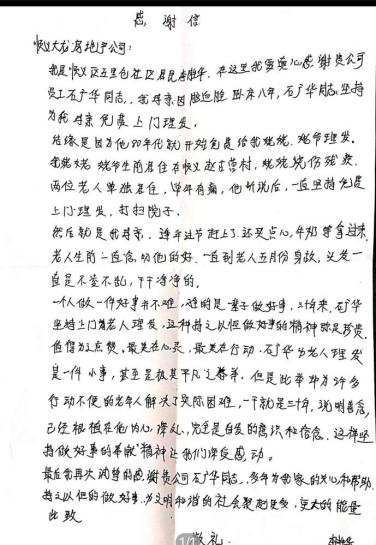 感谢信
顺义大龙房地产公司：
我是顺义区五里仓社区居民，在这里我要衷心感谢贵公司
员工石广华同志，我母亲因脑血栓卧床八年，石广华同志坚持
为我母亲免费上门理发。
结缘是因为他90年代就开始免费给我姥姥、姥爷理发。
我姥姥、姥爷生前居住在顺义赵古营村，姥姥
两位老人单独居住，常年有病，他听说后，一直坚持免费
上门理发，打扫院子。
然后就是我母亲，逢年过节赶上了还买点心，牛奶等拿过来，
老人生前一直念叨他的好，一直到老人五月份身故，头发一
直是不长不乱，干干净净的。
一个人做一件好事并不难，难的是一辈子做好事，三十年来，石广华
坚持上门为老人理发，这种持之以恒做好事的精神难能珍贵，
值得为之点赞，最美在心灵，最美在行动，石广华为老人理发
是一件小事，甚至是极其平凡之善举，但是此举却为许多
行动不便的老年人解决了实际困难，一干就是三十年，说明善念，
已经根植在他内心深处，完全是自觉的意识和信念，这种坚
持做好事的奉献精神让我们深受感动。
最后我再次诚挚的感谢贵公司石广华同志，多年为我家的关心和帮助，
持之以恒的做好事，为文明和谐的社会聚起更多，更大的能量
此致
敬礼
1/1